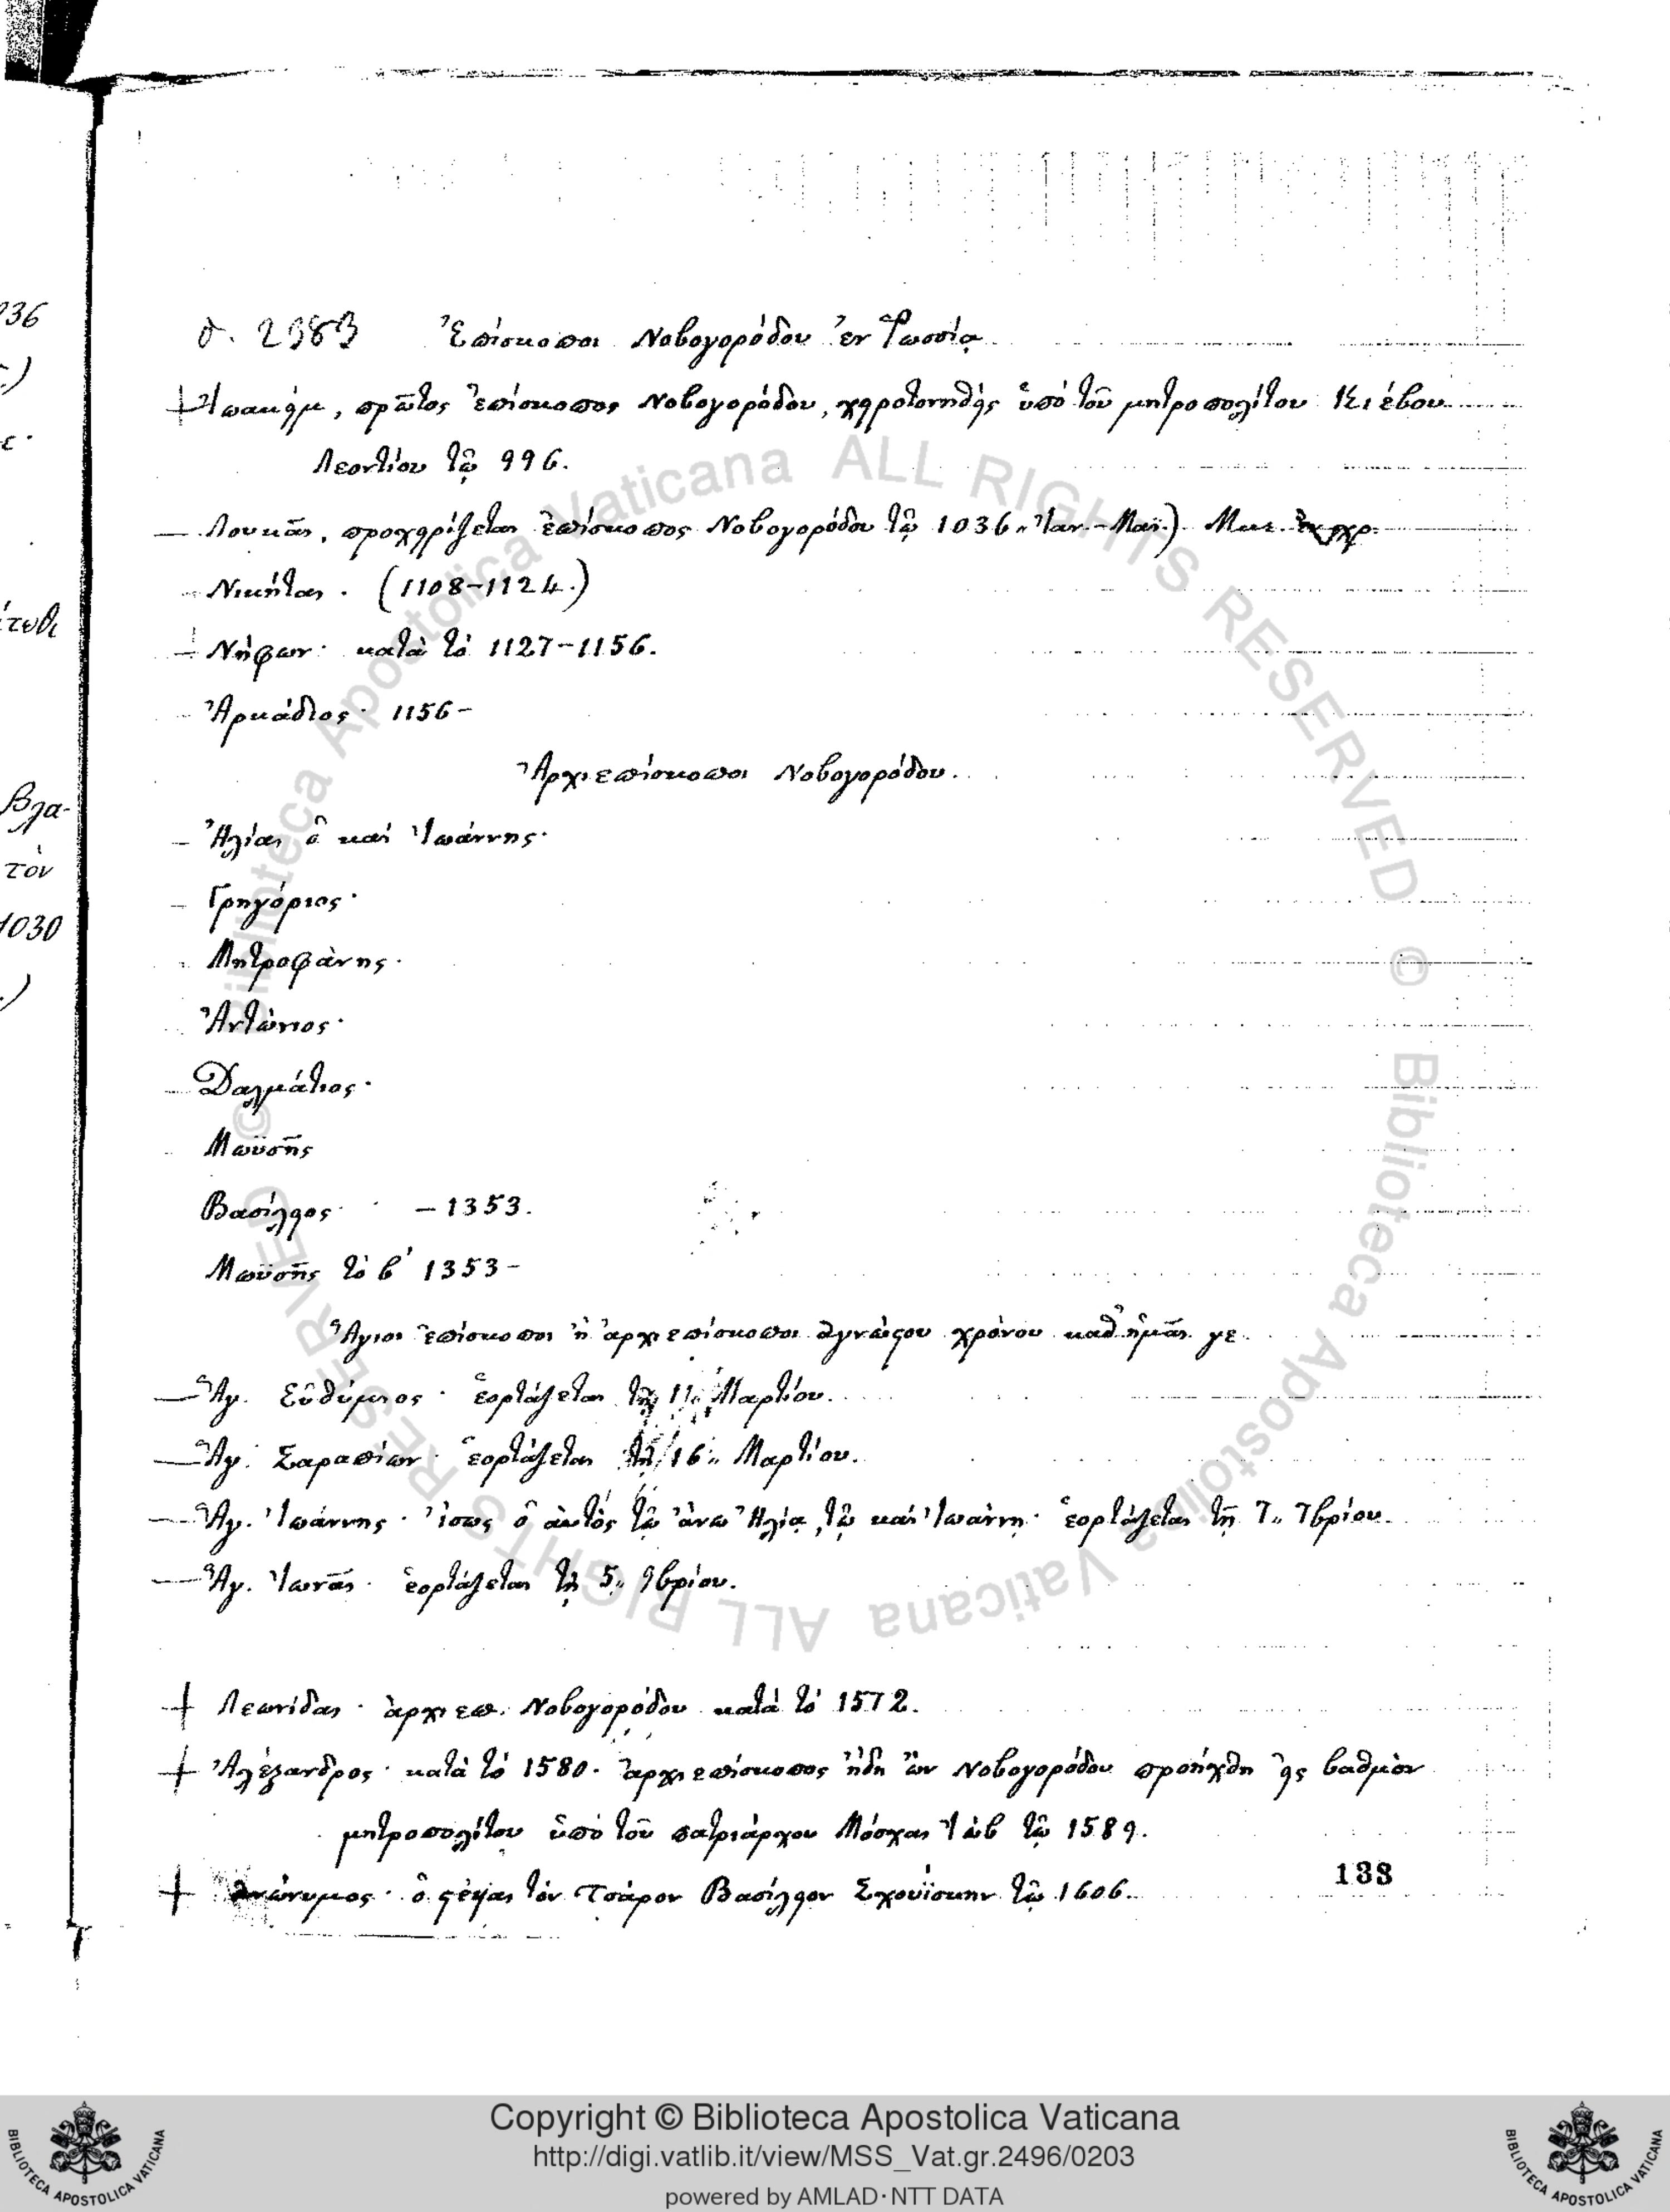 236
ϛ. 2983 Ἐπίσκοποι Νοβογορόδου ἐν Ῥωσίᾳ
Ἰωακεὶμ, πρῶτος ἐπίσκοπος Νοβογορόδου, χειροτονηθεὶς ὑπὸ τοῦ μητροπολίτου Κιέβου
Λεοντίου τῷ 996.
— Λουκᾶς, προχειρίζεται ἐπίσκοπος Νοβογορόδου τῷ 1036 „ Ἰαν.-Μαϊ.)
Νικήτας . (1108-1124.)
— Νήφων · κατὰ τὸ 1127-1156.
- Ἀρκάδιος · 1156 -
Ἀρχιεπίσκοποι Νοβογορόδου.
- Ἠλίας ὁ καὶ Ἰωάννης·
- Γρηγόριος·
Μητροφάνης·
Ἀντώνιος·
- Δαλμάτιος·
Μωϋσῆς
Βασίλειος· - 1353.
Μωϋσῆς τὸ β' 1353 -
Ἅγιοι ἐπίσκοποι ἢ ἀρχιεπίσκοποι ἀγνώστου χρόνου καθ' ἡμᾶς γε
— Ἅγ. Εὐθύμιος · ἑορτάζεται τῇ 11 „ Μαρτίου.
— Ἅγ. Σαραπίων · ἑορτάζεται τῇ 16 „ Μαρτίου.
— Ἅγ. Ἰωάννης · ἴσως ὁ αὐτὸς τῷ ἄνω Ἠλίᾳ, τῷ καὶ Ἰωάννῃ · ἑορτάζεται τῇ 7 „ 7βρίου.
— Ἅγ. Ἰωνᾶς · ἑορτάζεται τῇ 5 „ 9βρίου.
+ Λεωνίδας · ἀρχιεπ. Νοβογορόδου κατὰ τὸ 1572.
+ Ἀλέξανδρος · κατὰ τὸ 1580 · ἀρχιεπίσκοπος ἤδη ὢν Νοβογορόδου προήχθη εἰς βαθμὸν
μητροπολίτου ὑπὸ τοῦ πατριάρχου Μόσχας Ἰὼβ τῷ 1589.
+ Ἀνώνυμος · ὁ στέψας τὸν Τσάρον Βασίλειον Σχουΐσκην τῷ 1606.
133
τωθι
Βλα-
τὸν
1030
© Biblioteca Apostolica Vaticana ALL RIGHTS RESERVED © Biblioteca Apostolica Vaticana ALL RIGHTS RESERVED
Copyright © Biblioteca Apostolica Vaticana
http://digi.vatlib.it/view/MSS_Vat.gr.2496/0203
powered by AMLAD·NTT DATA
BIBLIOTECA APOSTOLICA VATICANA
BIBLIOTECA APOSTOLICA VATICANA